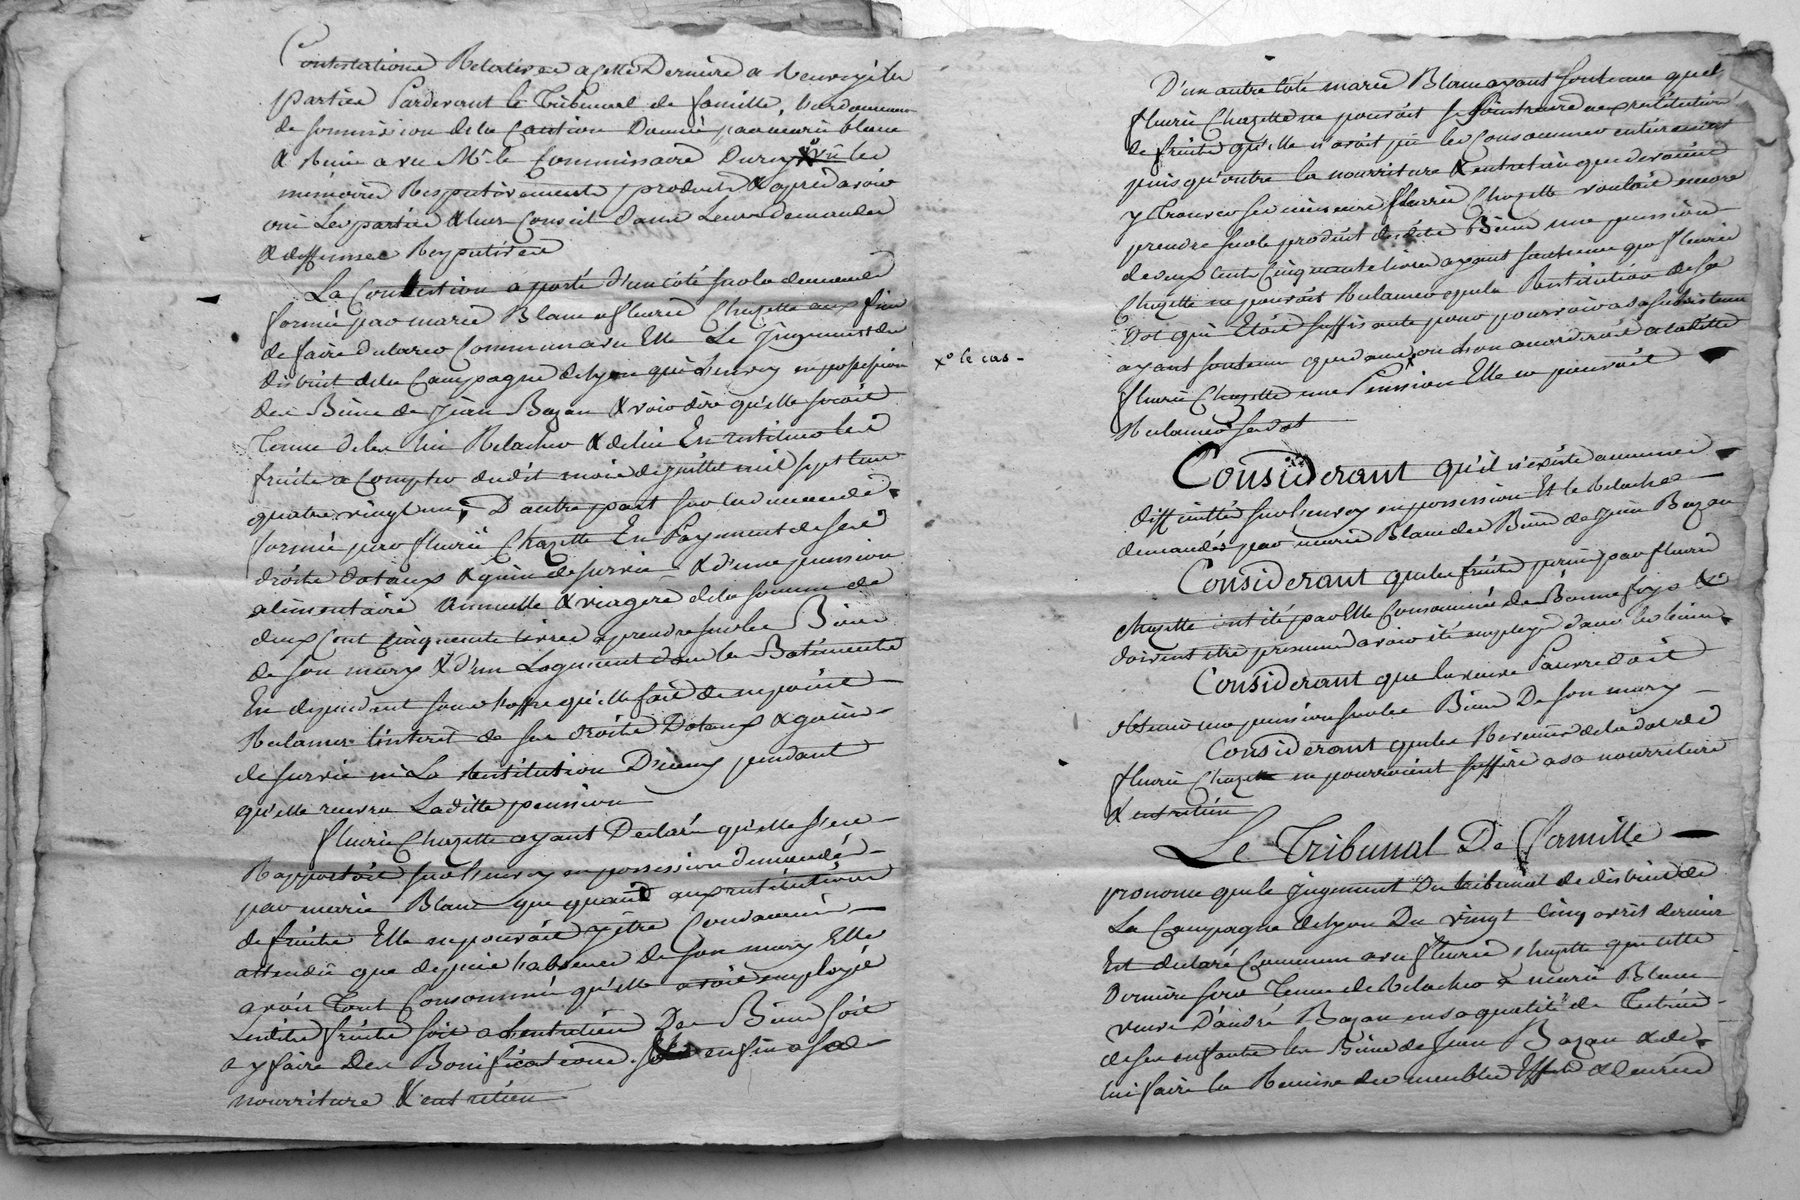 Contestations Relatives a cette Derniere a Renvoyé les
parties Pardevant le Tribunal de famille, l'ordonnance
de soumission de la Caution Donnée par marie blanc
& Reçue avec Mr le Commissaire Du roy vu les
memoires Respectivement produits & après avoir
oui Les parties & leur Conseil dans Leurs demandes
& deffenses Respectives
La Contestation a porté d'un côté sur la demande
formée par marie Blanc a fleurie Chazette aux fins
de faire declarer Commun avec Elle Le Jugement du
district de la Campagne de Lyon qui l'envoy en possession
des Biens de Jean Bazan & voir dire qu'elle seroit
Tenue de les lui Relacher & de lui En restituer les
fruits a Compter dudit mois de juillet mil sept cent
quatre vingt un, D'autre part sur la demande
formée par fleurie Chazette En Payement de ses
droits dotaux & gain de survie & d'une pension
alimentaire Annuelle & viagere de la somme de
deux Cent Cinquante livres a prendre sur les Biens
de son mary & d'un Logement dans les Batiments
En dependant sous l'offre qu'elle fait de ne point
Reclamer l'interet de ses droits Dotaux & gain
de survie ni La Restitution D'iceux pendant
qu'elle recevra Laditte pension
fleurie Chazette ayant Declaré qu'elle s'en
Rapportoit sur l'envoy en possession demandé
par marie Blanc que quand aux restitutions
de fruits Elle ne pouvoit y être Condamnée
attendu que depuis l'absence De son mary Elle
avoit Tout Consommé qu'elle avoit employé
Lesdits fruits soit a l'entretien Des Biens soit
a y faire Des Bonifications soit enfin a sa
nourriture & entretien
xo le cas
D'un autre côté marie Blanc ayant soutenu que
fleurie Chazette ne pouvoit se soustraire aux restitutions
de fruits qu'elle n'avoit pu les Consommer entierement
puis qu'outre la nourriture & entretien que devoient
y Trouver fleurie Chazette vouloit encore
prendre sur le produit desdits Biens une pension
de deux cent Cinquante livres ayant soutenu que fleurie
Chazette ne pouvoit Reclamer que la Restitution de sa
Dot qui Etoit suffisante pour pourvoir a sa subsistance
ayant soutenu que dans ou L'on accorderoit a laditte
fleurie Chazette une Pension Elle ne pouvoit
Reclamer sa dot
Considerant qu'il n'existe aucune
difficulté sur l'envoy en possession Et le Relache
demandés par marie Blanc des Biens de Jean Bazan
Considerant que les fruits perçus par fleurie
Chazette ont été par Elle Consommés de Bonne foy &
doivent etre presumés avoir été employés dans les biens
Considerant que la veuve Pauvre doit
obtenir une pension sur les Biens De son mary
Considerant que les Revenus de la dot de
fleurie Chazette ne pourroient suffire a sa nourriture
& entretien
Le Tribunal De famille
prononce que le jugement Du tribunal de district de
La Campagne de Lyon Du vingt Cinq avril dernier
Est declaré Commun avec fleurie Chazette que cette
Derniere sera Tenue de Relacher a marie Blanc
veuve D'andré Bazan en sa qualité de Tutrice
de ses enfants les Biens de Jean Bazan & de
lui faire la Remise des meubles Effets & denrées